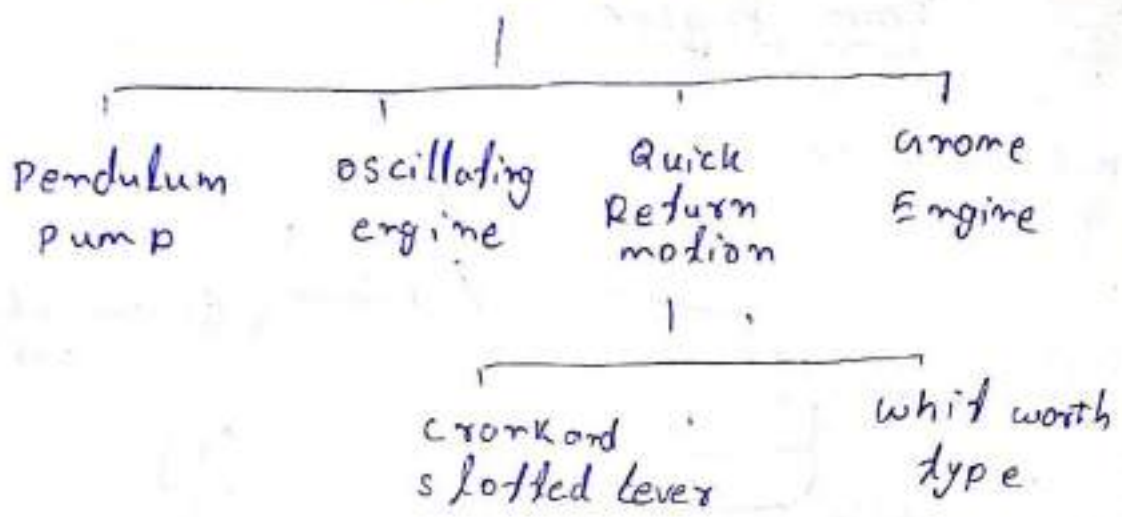 Pendulum
Pump
oscillating
engine
Quick
Return
motion
Gnome
Engine
Crank and
slotted lever
whit worth
type